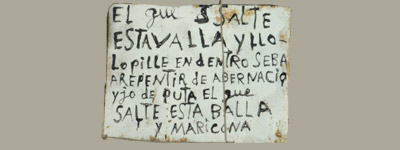 EL que S SALTE
ESTAVALLA Y LLO-
LO PILLE EN DENTRO SEBA
AREPENTIR DE ABERNACIO
YJO DE PUTA EL que
SALTE ESTA BALLA
Y MARICONA